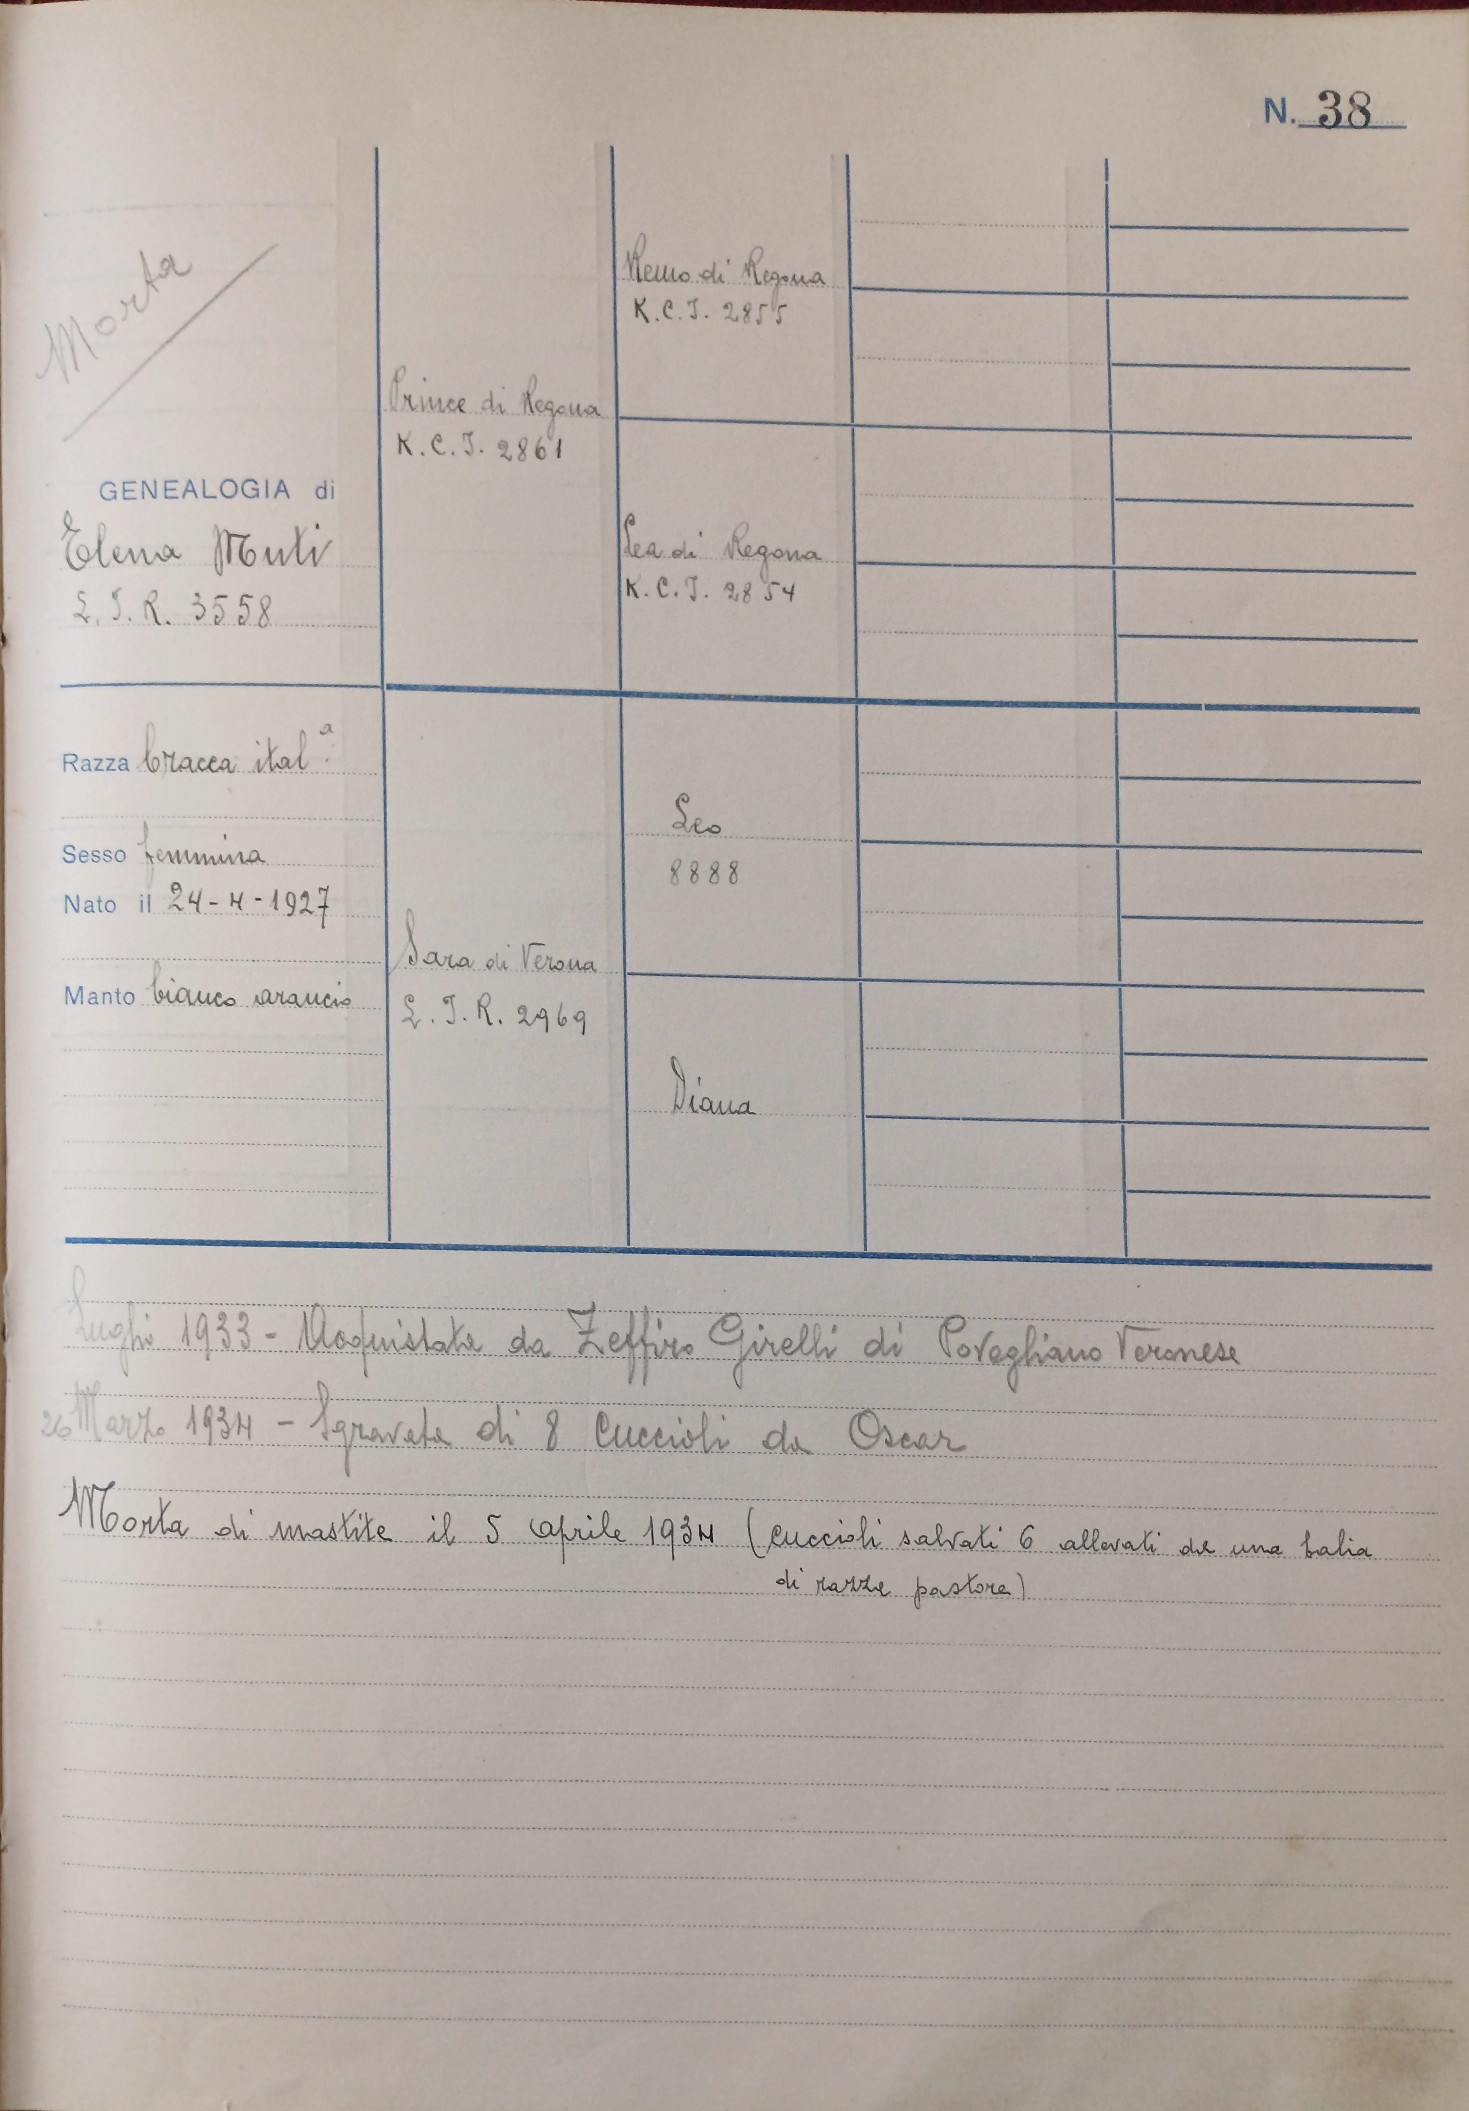 N. 38
Morta
GENEALOGIA di
Elena Muti
L.I.R. 3558
Razza bracca ital.ª
Sesso femmina
Nato il 24-4-1927
Manto bianco arancio
Prince di Regona
K.C.I. 2861
Sara di Verona
L.I.R. 2969
Remo di Regona
K.C.I. 2855
Lea di Regona
K.C.I. 2854
Leo
8888
Diana
Luglio 1933 - Acquistata da Zeffiro Girelli di Povegliano Veronese
26 Marzo 1934 - Sgravata di 8 cuccioli da Oscar
Morta di mastite il 5 aprile 1934 (cuccioli salvati 6 allevati da una balia
di razza pastore)